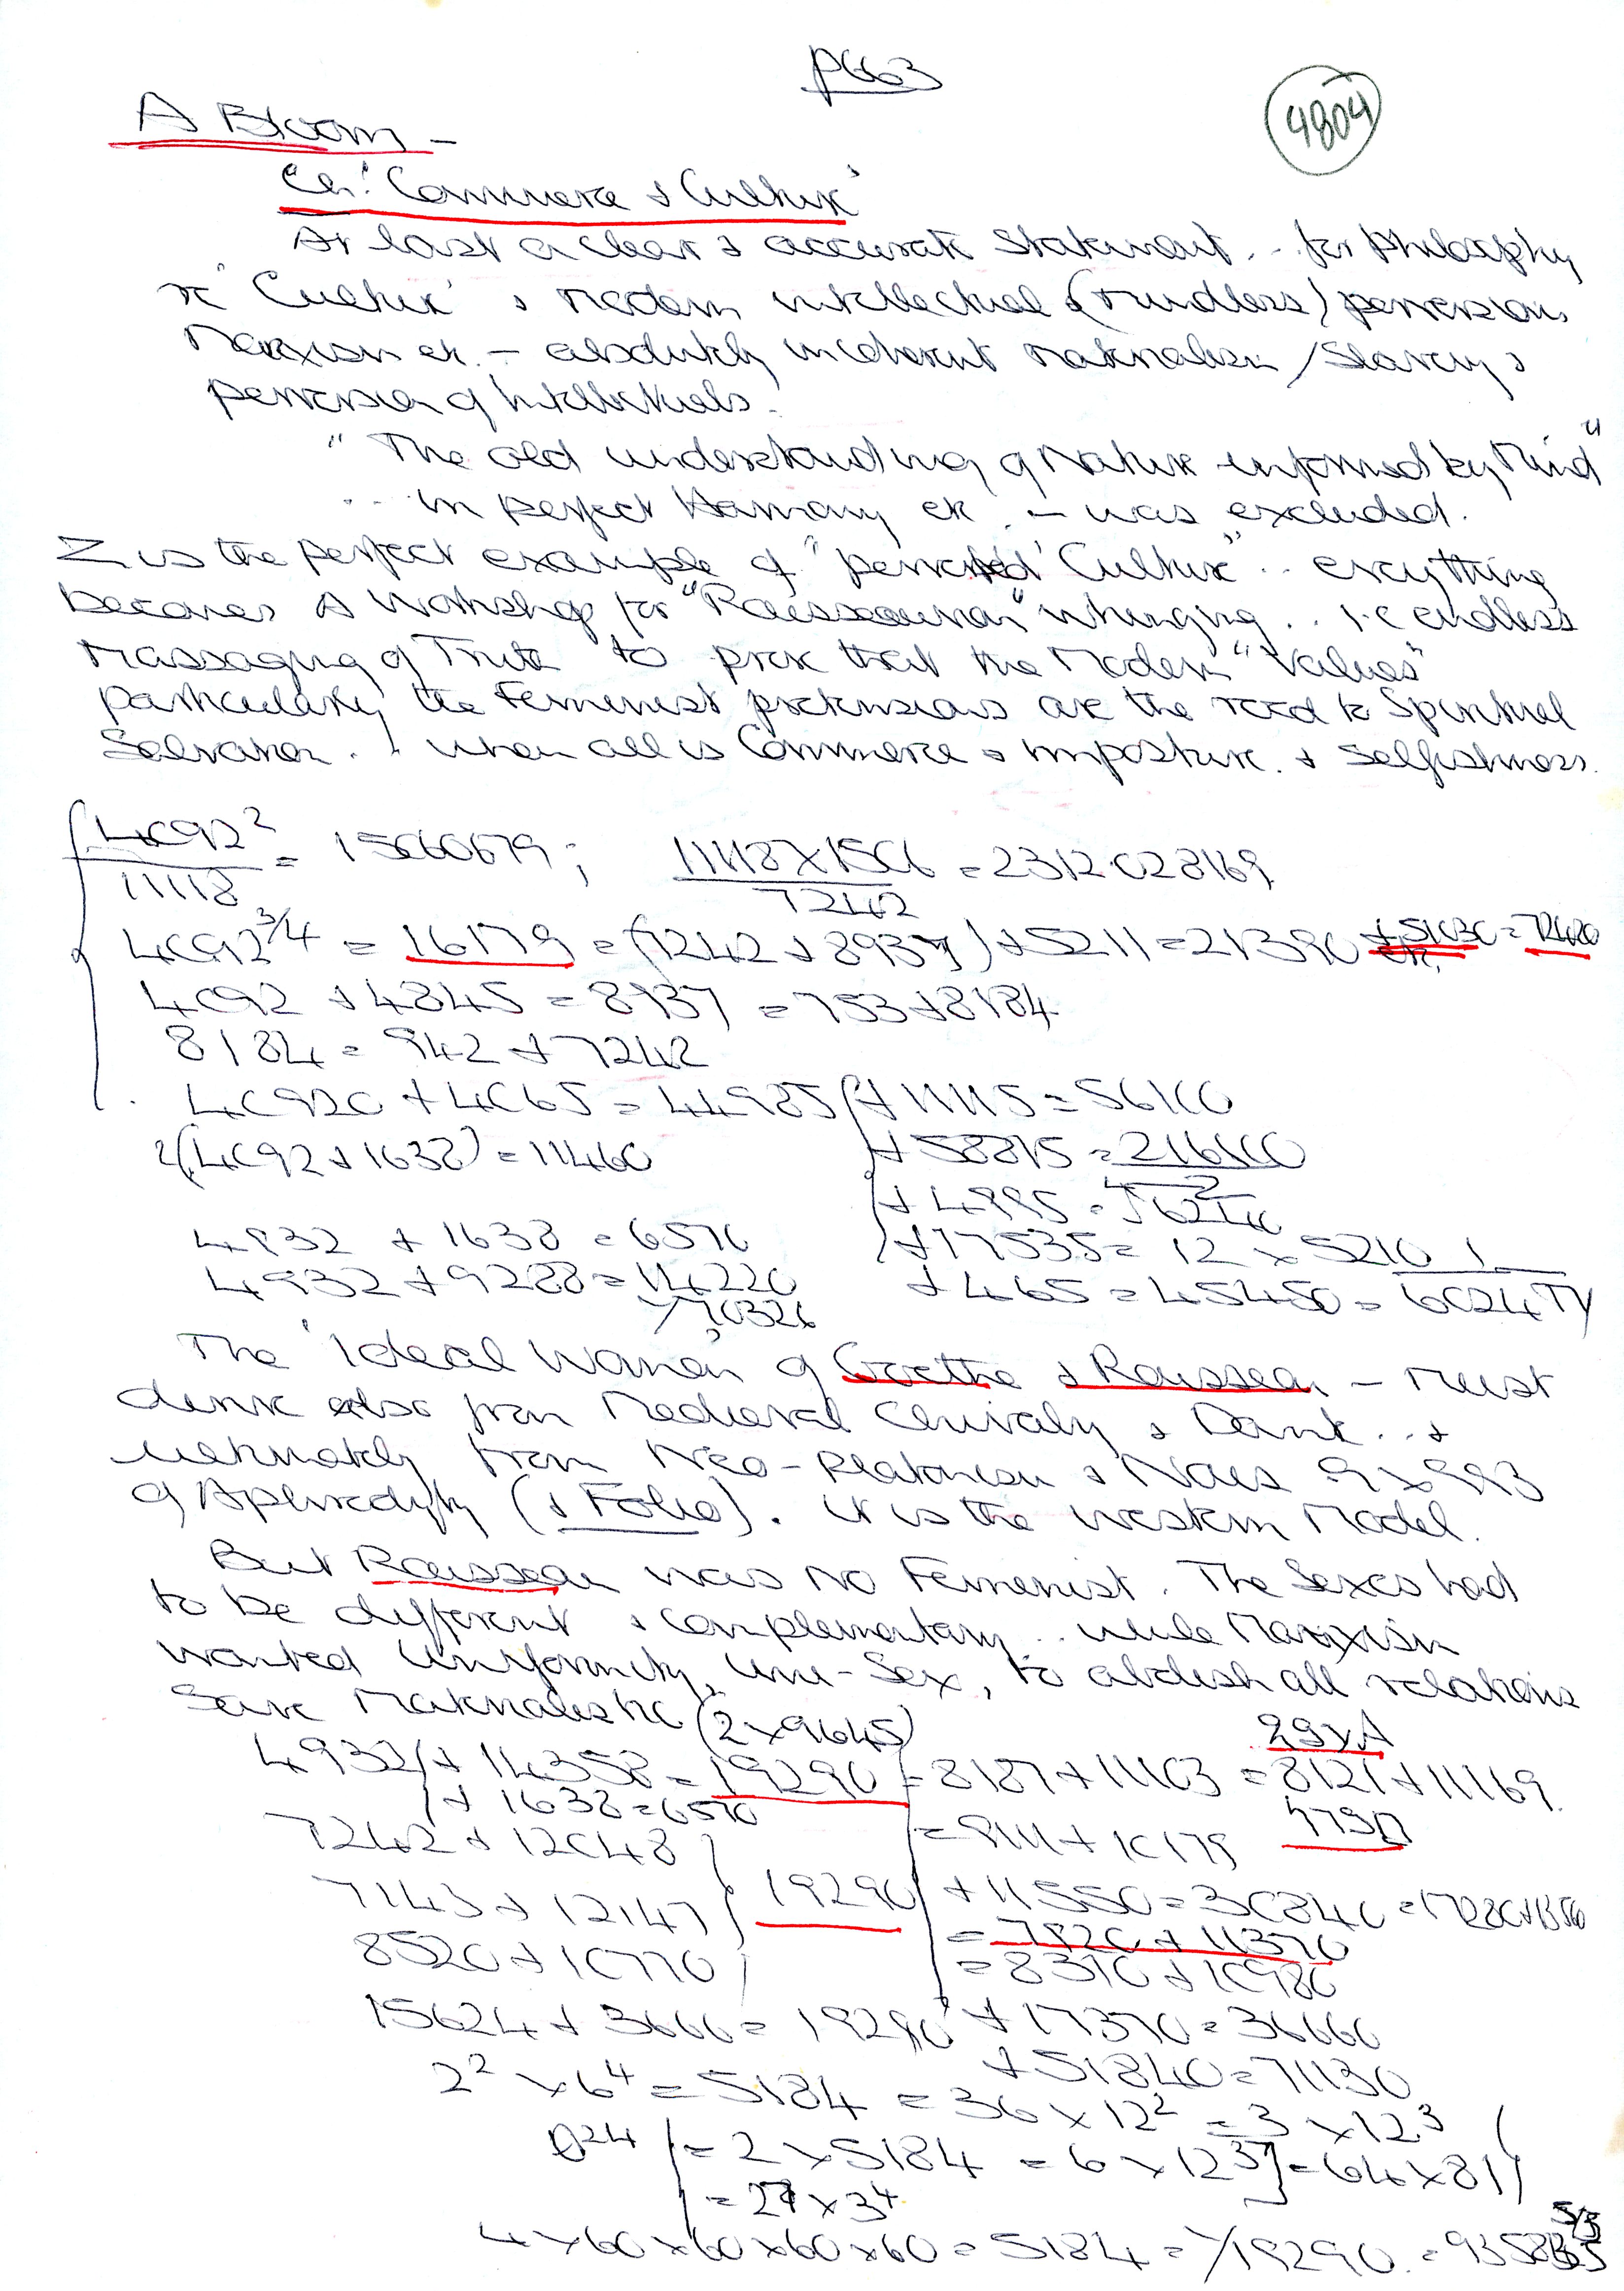 pG63
4804
A Bloom -
Ch. 'Commerce & Culture'
At last a clear & accurate statement .. for Philosophy
re "Culture" & modern intellectual & (mindless) perversion,
Marxism etc. - absolutely incoherent materialism / Slavery &
perversion of Intellectuals.
"The old understanding of Nature informed by Mind"
.. in perfect Harmony etc. - was excluded.
Z is the perfect example of "perverted Culture" .. everything
becomes A Workshop for "Rousseauian" whinging .. i.e endless
Massaging of Truth to prove that the Modern "Values"
particularly the Feminist pretensions are the road to Spiritual
Salvation .. when all is Commerce & Imposture & Selfishness.
4092² / 11118 = 15060679 ; 11118 x 1506 / 7242 = 2312028169
4092^3/4 = 16179 = (7242 + 8937) + 5211 = 21390 + 51030 = 72420
4092 + 4845 = 8937 = 753 + 8184
8184 = 942 + 7242
40920 + 4065 = 44985 + 11115 = 56100
2(4092 + 1638) = 11460
+ 58815 = 216100 / 2
4932 + 1638 = 6570
+ 17535 = 12 x 5210
4932 + 9288 = 14220
+ 465 = 45450 = 6024
The 'Ideal Woman' of Goethe & Rousseau - must
derive also from Medieval Chivalry & Dante .. &
ultimately from Neo-Platonism &
of Aphrodyty (& Folio). It is the western Model.
But Rousseau was no Feminist. The Sexes had
to be different & complementary .. while Marxism
wanted Uniformity, Uni-Sex, to abolish all relations
save Materialistic (2 x 9645)
4932 + 14358 = 19290 = 8187 + 11103 = 8121 + 11169
+ 1638 = 6570
7242 + 12048
= 9111 + 10179
7143 + 12147 19290 + 11550 = 30840
= 7920 + 11370
8520 + 10770
= 8310 + 10980
15624 + 3666 = 19290 + 17370 = 36660
+ 51840 = 71130
2² x 6⁴ = 5184 = 36 x 12² = 3 x 12³
= 2 x 5184 = 6 x 12³ = 64 x 81
= 2⁷ x 3⁴
4 x 60 x 60 x 60 x 60 = 5184 = 19290